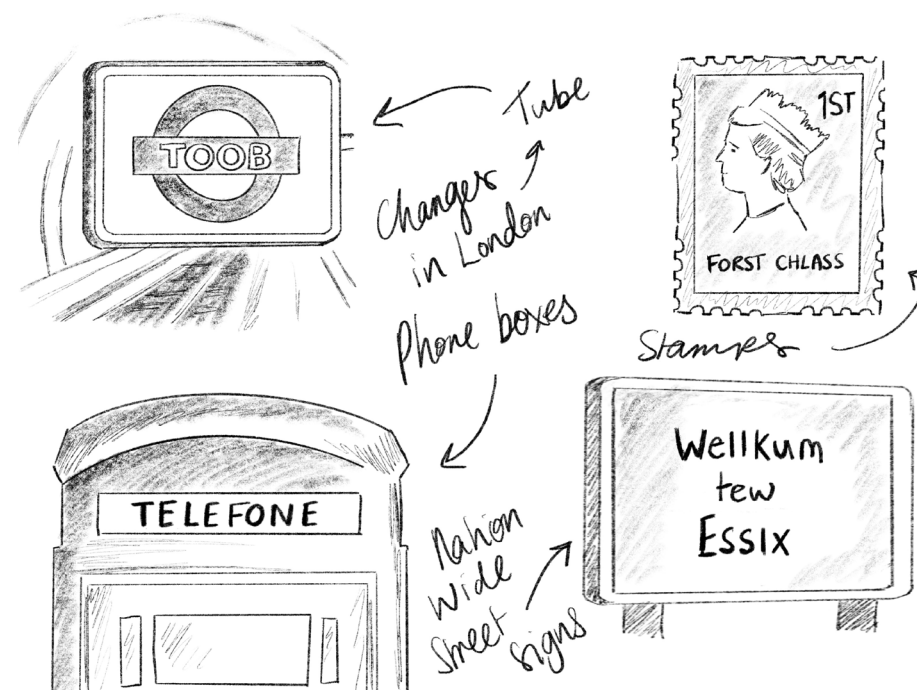 TOOB
Tube
Changes
in London
Phone boxes
TELEFONE
1ST
FORST CHLASS
Stamps
Nation
Wide
Street
signs
Wellkum
tew
ESSIX